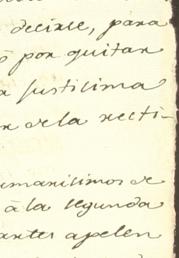 decirle, para
ó por quitar
a justisima
n de la recti-
umanisimos de
à la segunda
antes apelen